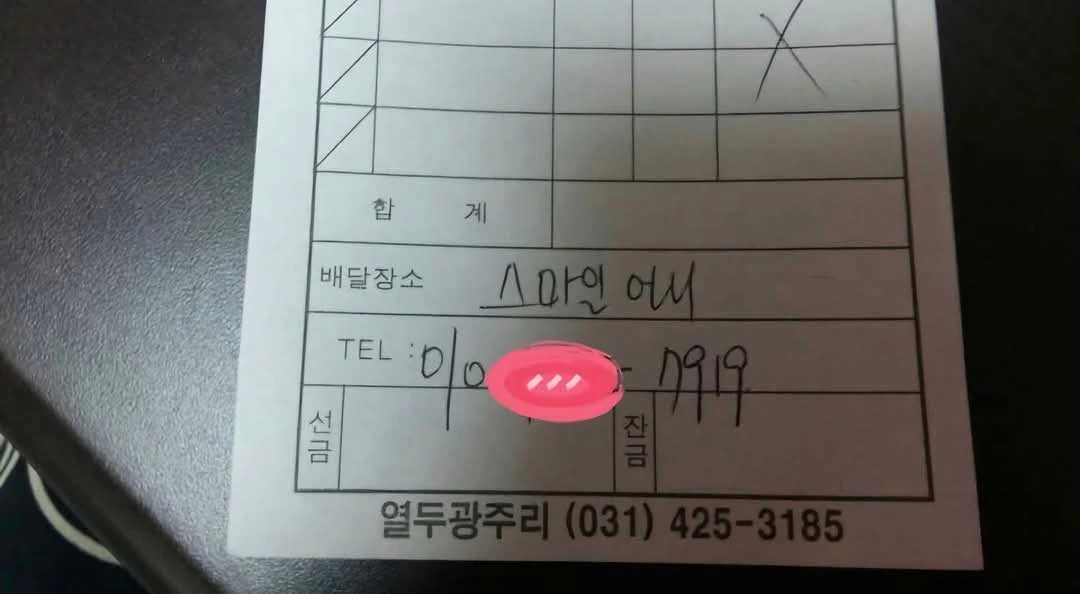 합 계
배달장소 스마일 어시
TEL : 010 - 7919
선금 잔금
열두광주리 (031) 425-3185